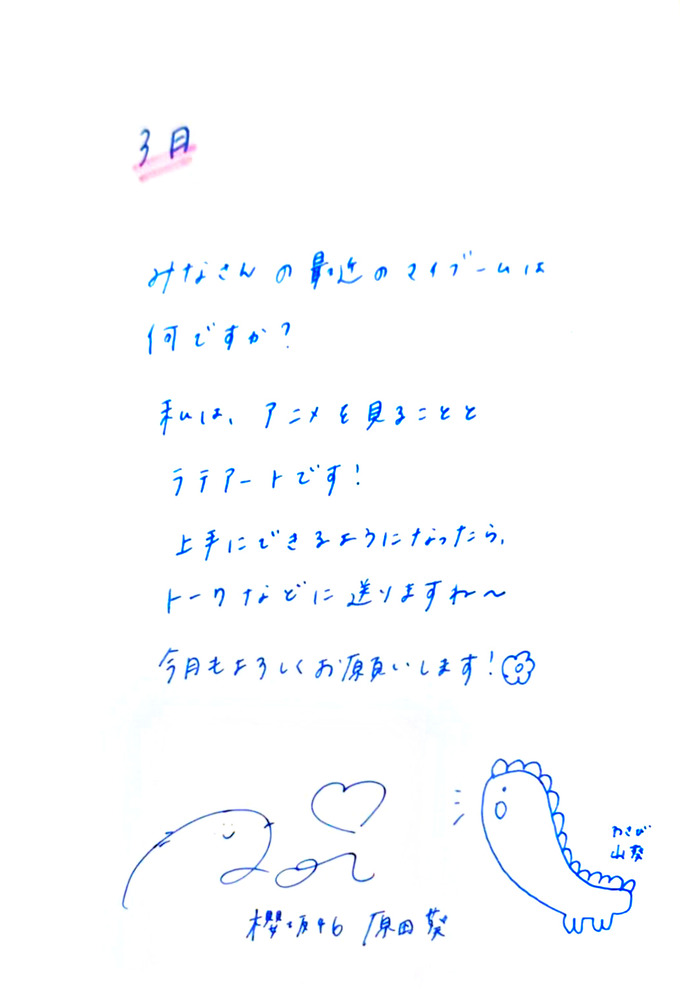 3月
みなさんの最近のマイブームは
何ですか?
私は、アニメを見ることと
ラテアートです!
上手にできるようになったら、
トークなどに送りますね〜
今月もよろしくお願いします!
わさび
山葵
櫻坂46 原田葵